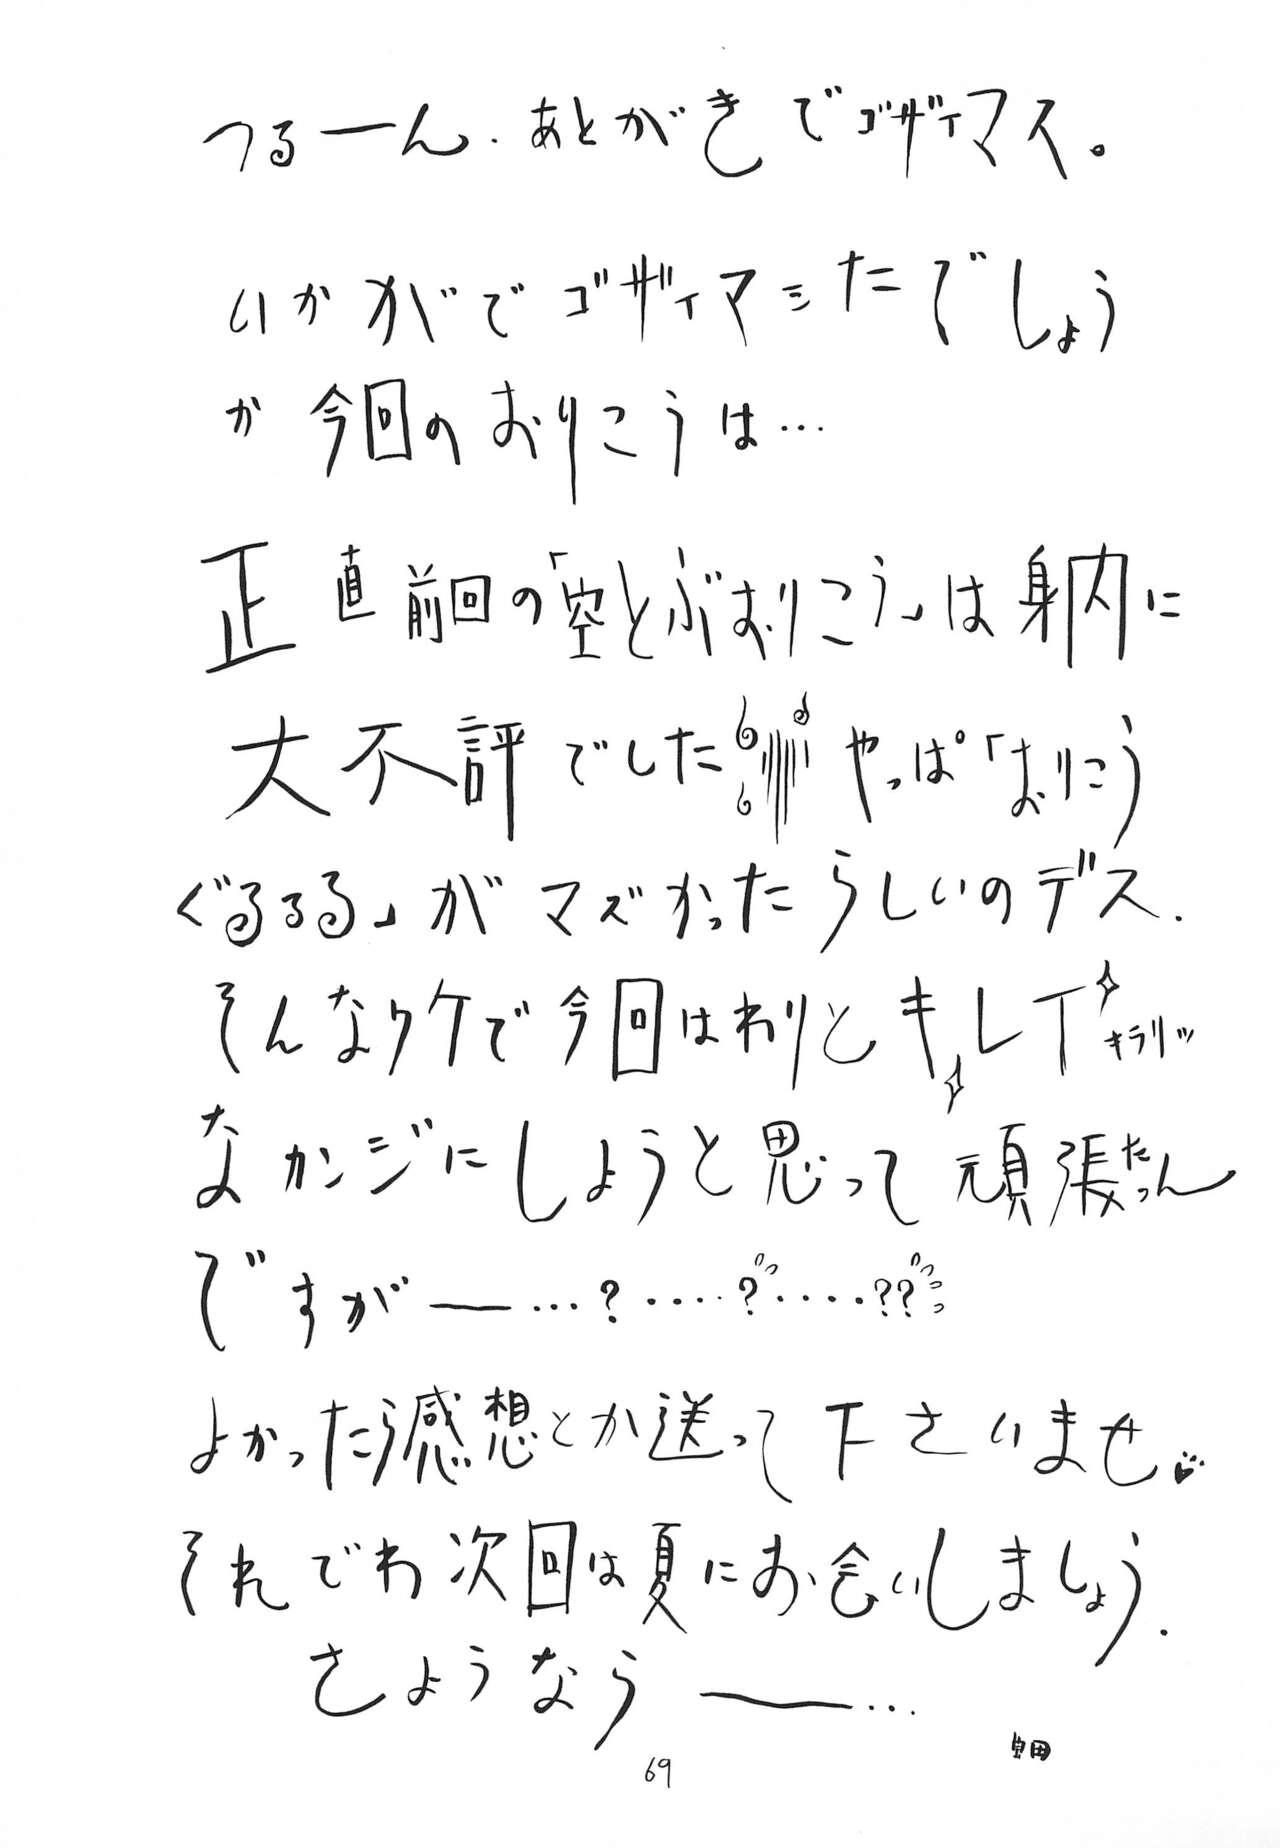 つるーん.あとがきでゴザイマス。
いかがでゴザイマシたでしょう
か今回のおりこうは…
正直前回の「空とぶおりこう」は身内に
大不評でした やっぱ「おりこう
ぐるるる」がマズかったらしいのデス.
そんなワケで今回はわりとキレイ キラリッ
なカンジにしようと思って頑張ったん
ですが――…?・・・・?・・・・・??
よかったら感想とか送って下さいませ
それでわ次回は夏にお会いしましょう.
さようなら――…
69